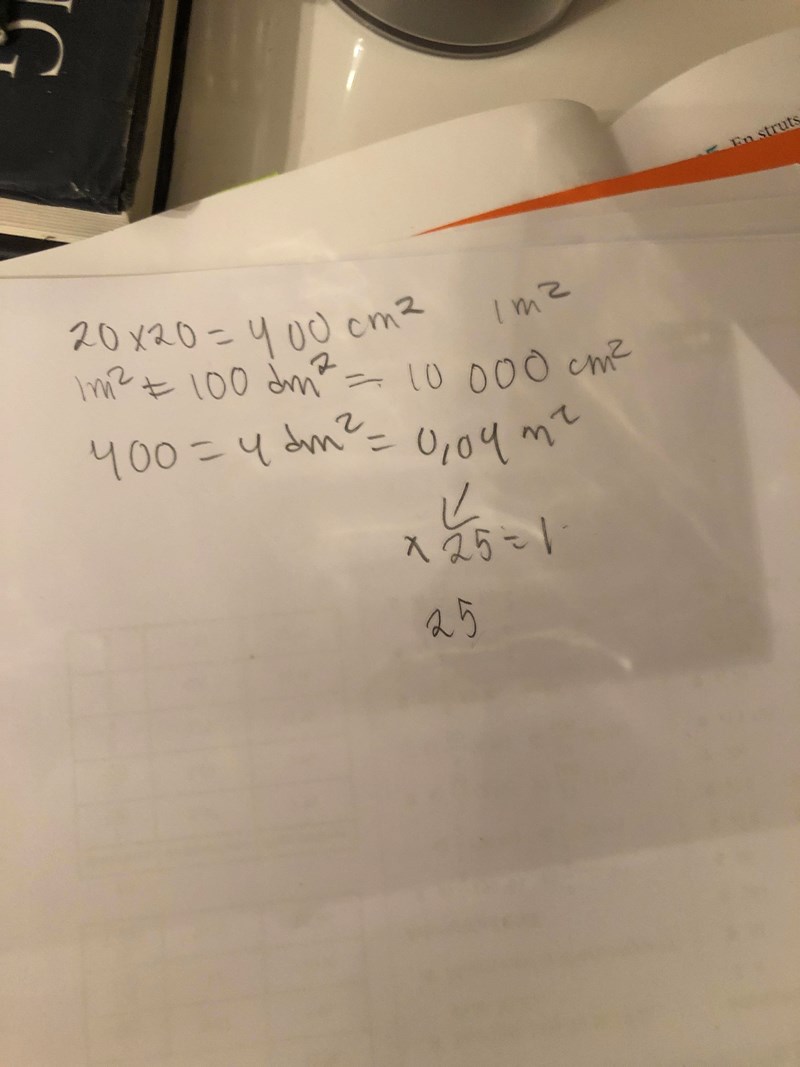 En struts
20x20 = 400 cm² 1m²
1m² = 100 dm² = 10 000 cm²
400 = 4 dm² = 0,04 m²
x 25 = 1
25